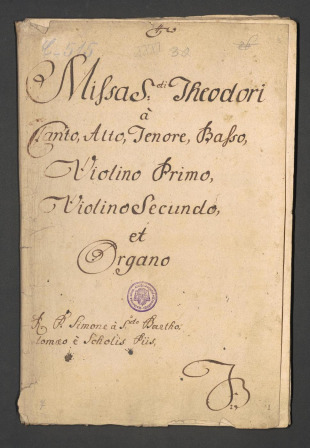 38
Missa S.di Theodori
à
Canto, Alto, Tenore, Basso,
Violino Primo,
Violino Secundo,
et
Organo
A P. Simone à S.cto Bartho
lomæo è Scholis Piis.